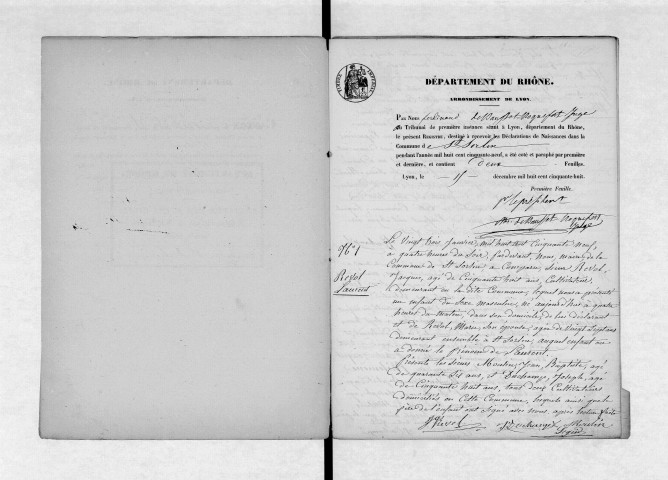 DÉPARTEMENT DU RHÔNE.
ARRONDISSEMENT DE LYON.
Par Nous Ferdinand Juge
au Tribunal de première instance séant à Lyon, département du Rhône,
le présent Registre, destiné à recevoir les Déclarations de Naissances dans la
Commune de St Sorlin
pendant l'année mil huit cent cinquante-neuf, a été coté et paraphé par première
et dernière, et contient Deux Feuilles.
Lyon, le 15 décembre mil huit cent cinquante-huit.
Première Feuille.
N° 1
Revol
Laurent
Le Vingt trois Janvier, mil huit cent Cinquante neuf,
à quatre heures du Soir, Pardevant, Nous, Maire de la
Commune de St Sorlin a Comparu, Sieur Revol,
Jacques, agé de Cinquante huit ans, Cultivateur,
demeurant en la dite Commune, lequel nous a présenté
un enfant du Sexe masculin, né aujourd'hui à quatre
heures du matin, dans son domicile, de lui déclarant
et de Marie, Son épouse, agée de Vingt Sept ans
demeurant ensemble, à St Sorlin, auquel enfant on
a donné le prénom de Laurent.
Présents les Sieurs Moulin, Jean, Baptiste, agé
de quarante Six ans, et Duchamp, Joseph, agé
de Cinquante huit ans, tout deux Cultivateurs
domiciliés en Cette Commune, lesquels ainsi que le
père de l'enfant ont Signé avec nous, après lecture faite
Revol Duchamp Moulin